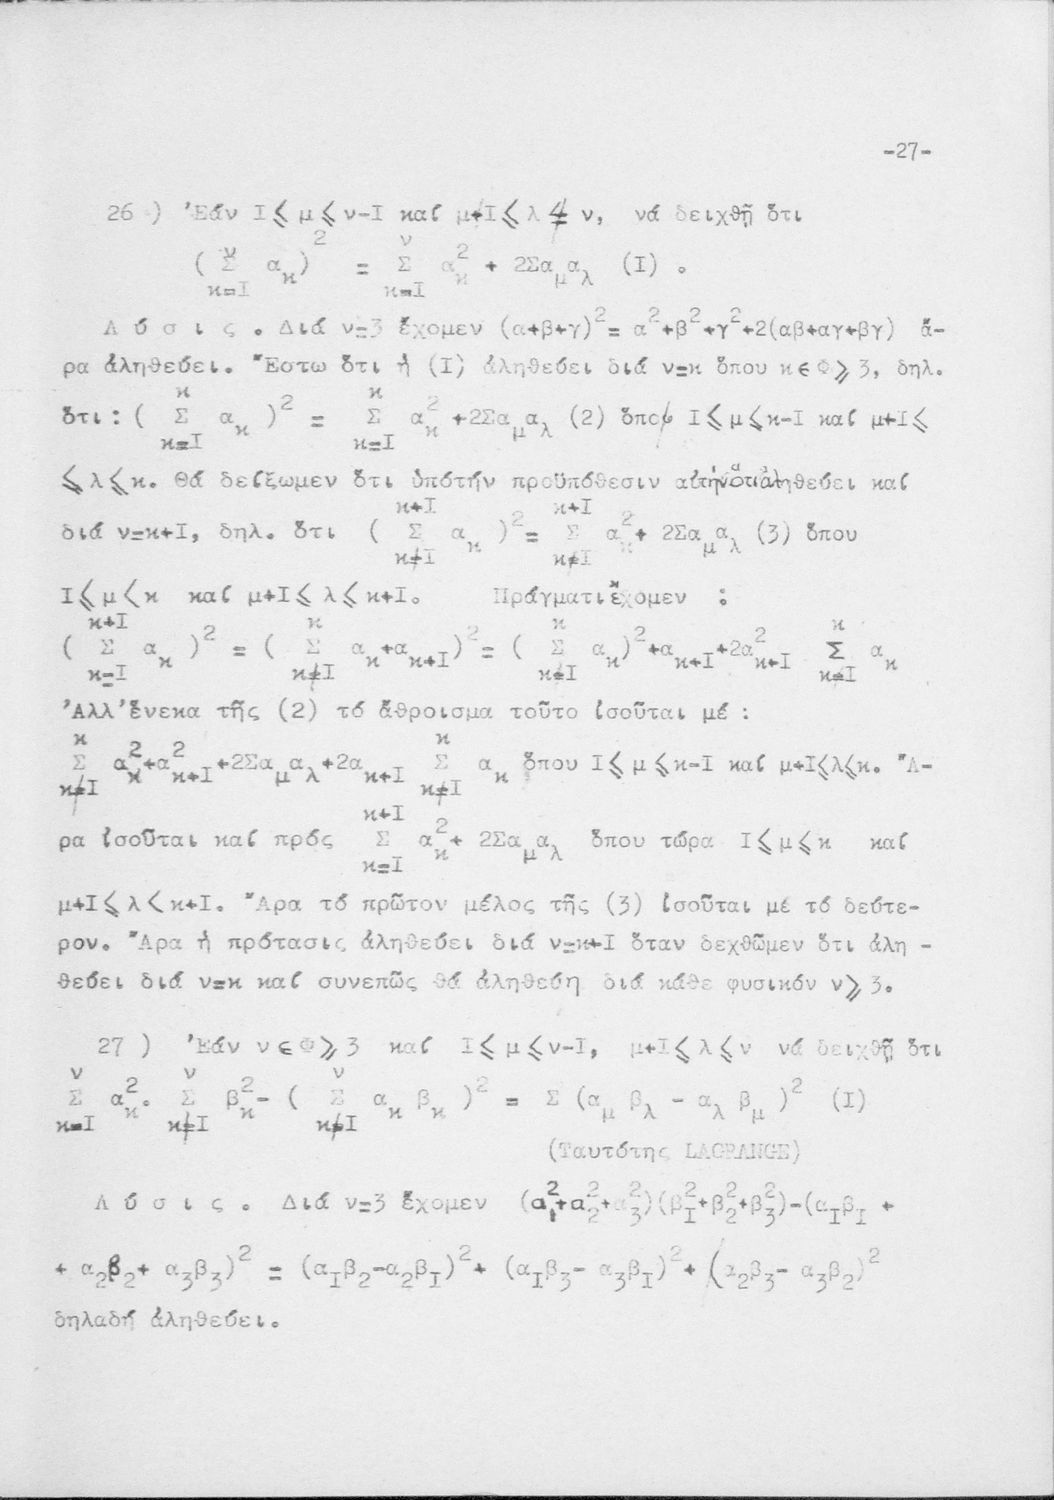 -27-
26 ) Ἐάν I⩽ μ⩽ ν-I καί μ+I⩽ λ ≠ ν, νά δειχθῇ ὅτι
( Σ_{κ=I}^{ν} α_κ )^2 = Σ_{κ=I}^{ν} α_κ^2 + 2Σα_μα_λ (I) .
Λ ύ σ ι ς . Διά ν=3 ἔχομεν (α+β+γ)^2= α^2+β^2+γ^2+2(αβ+αγ+βγ) ἄ-
ρα ἀληθεύει. Ἔστω ὅτι ἡ (I) ἀληθεύει διά ν=κ ὅπου κ∈Φ⩾ 3, δηλ.
ὅτι: ( Σ_{κ=I}^{κ} α_κ )^2 = Σ_{κ=I}^{κ} α_κ^2 +2Σα_μα_λ (2) ὅπου I⩽ μ⩽ κ-I καί μ+I⩽
⩽ λ⩽ κ. Θά δείξωμεν ὅτι ὑπό τήν προϋπόθεσιν αὐτήν ὅτι ἀληθεύει καί
διά ν=κ+I, δηλ. ὅτι ( Σ_{κ=I}^{κ+I} α_κ )^2= Σ_{κ=I}^{κ+I} α_κ^2+ 2Σα_μα_λ (3) ὅπου
I⩽ μ< κ καί μ+I⩽ λ⩽ κ+I. Πράγματι ἔχομεν :
( Σ_{κ=I}^{κ+I} α_κ )^2 = ( Σ_{κ=I}^{κ} α_κ+α_{κ+I})^2= ( Σ_{κ=I}^{κ} α_κ)^2+α_{κ+I}+2α_{κ+I}^2 Σ_{κ=I}^{κ} α_κ
Ἀλλ' ἕνεκα τῆς (2) τό ἄθροισμα τοῦτο ἰσοῦται μέ :
Σ_{κ=I}^{κ} α_κ^2+α_{κ+I}^2+2Σα_μα_λ+2α_{κ+I} Σ_{κ=I}^{κ} α_κ ὅπου I⩽ μ⩽κ-I καί μ+I⩽λ⩽κ. Ἄ-
ρα ἰσοῦται καί πρός Σ_{κ=I}^{κ+I} α_κ^2+ 2Σα_μα_λ ὅπου τώρα I⩽ μ⩽ κ καί
μ+I⩽ λ< κ+I. Ἄρα τό πρῶτον μέλος τῆς (3) ἰσοῦται μέ τό δεύτε-
ρον. Ἄρα ἡ πρότασις ἀληθεύει διά ν=κ+I ὅταν δεχθῶμεν ὅτι ἀλη -
θεύει διά ν=κ καί συνεπῶς θά ἀληθεύῃ διά κάθε φυσικόν ν⩾ 3.
27 ) Ἐάν ν∈Φ⩾ 3 καί I⩽ μ⩽ν-I, μ+I⩽ λ⩽ν νά δειχθῇ ὅτι
Σ_{κ=I}^{ν} α_κ^2. Σ_{κ=I}^{ν} β_κ^2- ( Σ_{κ=I}^{ν} α_κ β_κ )^2 = Σ (α_μ β_λ - α_λ β_μ )^2 (I)
(Ταυτότης LAGRANGE)
Λ ύ σ ι ς . Διά ν=3 ἔχομεν (α_1^2+α_2^2+α_3^2)(β_I^2+β_2^2+β_3^2)-(α_Iβ_I +
+ α_2β_2+ α_3β_3)^2 = (α_Iβ_2-α_2β_I)^2+ (α_Iβ_3- α_3β_I)^2+ (α_2β_3- α_3β_2)^2
δηλαδή ἀληθεύει.